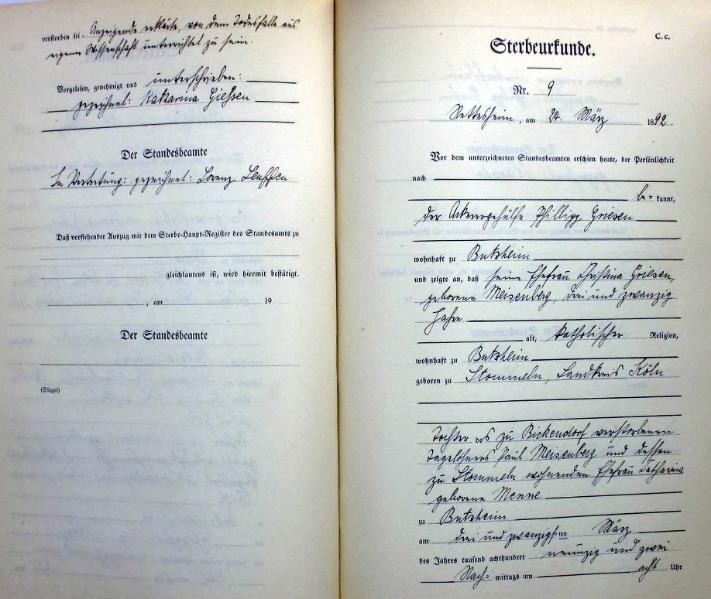 verstorben sei. Anzeigende erklärte, von dem Todesfalle aus
eigener Wissenschaft unterrichtet zu sein.
Vorgelesen, genehmigt und unterschrieben:
gezeichnet: Katharina Gießen
Der Standesbeamte
In Vertretung: gezeichnet: Lorenz
Daß vorstehender Auszug mit dem Sterbe-Haupt-Register des Standesamts zu
gleichlautend ist, wird hiermit bestätigt.
, am 19
Der Standesbeamte
(Siegel)
C. c.
Sterbeurkunde.
Nr. 9
Nettesheim, am 24 März 1892.
Vor dem unterzeichneten Standesbeamten erschien heute, der Persönlichkeit
nach
be= kannt,
der Ackergehülfe Phillipp Griesen
wohnhaft zu Butzheim
und zeigte an, daß seine Ehefrau Christina Griesen,
geborene Meisenberg, drei und zwanzig
Jahre
alt, katholischer Religion,
wohnhaft zu Butzheim
geboren zu Stommeln, Landkreis Köln
Tochter des zu Bickendorf verstorbenen
Tagelöhners Paul Meisenberg und dessen
zu Stommeln wohnenden Ehefrau Katharina
geborene Menne
zu Butzheim
am drei und zwanzigsten März
des Jahres tausend achthundert neunzig und zwei
Nach= mittags um acht Uhr